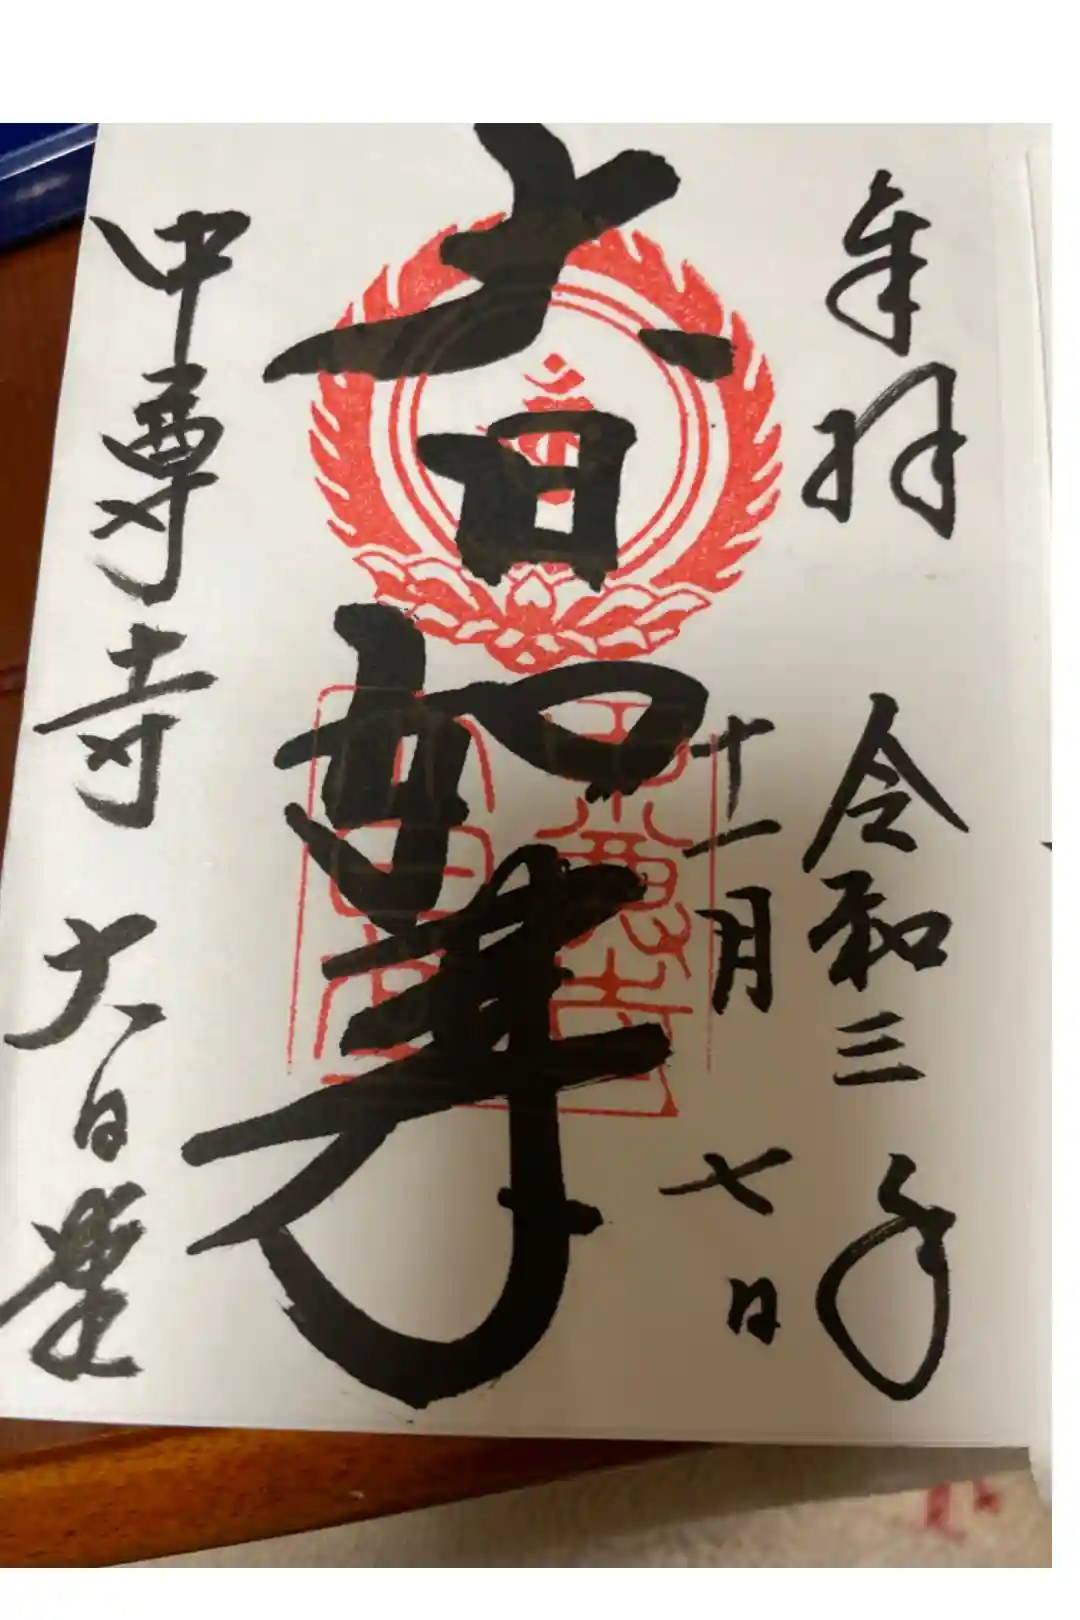 奉拝
令和三年
十一月七日
大日如来
中尊寺 大日堂